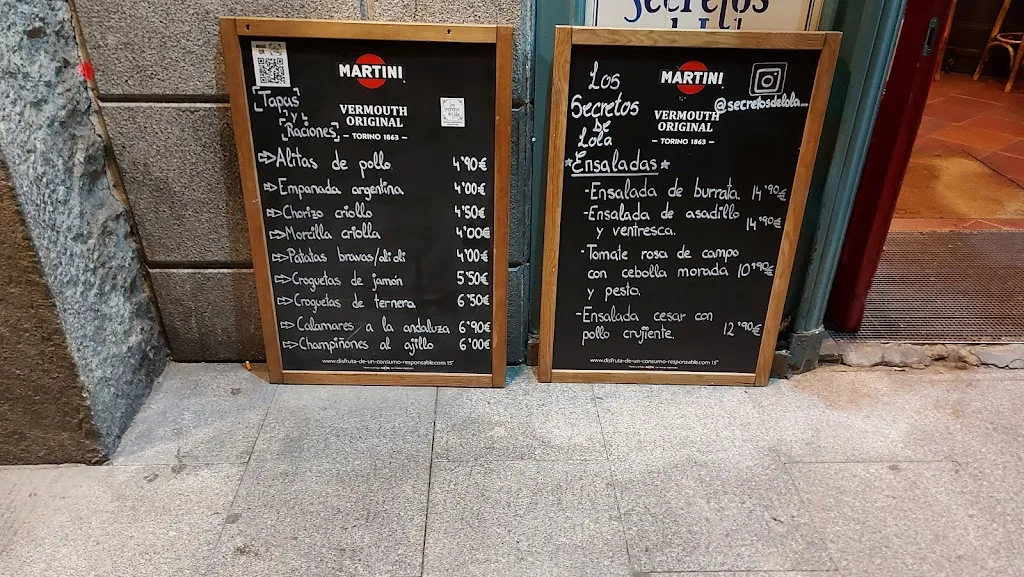 Secretos
MARTINI
VERMOUTH
ORIGINAL
TORINO 1863
Tapas
y
Raciones
Alitas de pollo 4'90€
Empanada argentina 4'00€
Chorizo criollo 4'50€
Morcilla criolla 4'00€
Patatas bravas/ali oli 4'00€
Croquetas de jamón 5'50€
Croquetas de ternera 6'50€
Calamares a la andaluza 6'90€
Champiñones al ajillo 6'00€
www.disfruta-de-un-consumo-responsable.com 15°
Los
Secretos
De
Lola
MARTINI
@secretosdelola
VERMOUTH
ORIGINAL
TORINO 1863
*Ensaladas*
-Ensalada de burrata. 14'90€
-Ensalada de asadillo
y ventresca. 14'90€
-Tomate rosa de campo
con cebolla morada 10'90€
y pesto.
-Ensalada cesar con
pollo crujiente. 12'90€
www.disfruta-de-un-consumo-responsable.com 15°